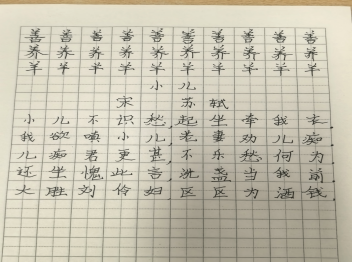 善善善善善善善善善善
养养养养养养养养养养
羊羊羊羊羊羊羊羊羊羊
小儿
宋 苏轼
小儿不识愁,起坐牵我衣,
我欲嗔小儿,老妻劝儿痴,
儿痴君更甚,不乐愁何为,
还坐愧此言,洗盏当我前,
大胜刘伶妇,区区为酒钱,